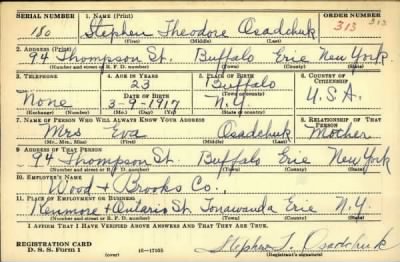 SERIAL NUMBER 1. NAME (Print) ORDER NUMBER
180 Stephen Theodore Osadchuk 313 313
(First) (Middle) (Last)
2. ADDRESS (Print)
94 Thompson St. Buffalo Erie New York
(Number and street or R. F. D. number) (Town) (County) (State)
3. TELEPHONE 4. AGE IN YEARS 5. PLACE OF BIRTH 6. COUNTRY OF CITIZENSHIP
23 Buffalo
None DATE OF BIRTH (Town or county) U.S.A.
3-9-1917 N.Y.
(Exchange) (Number) (Mo.) (Day) (Yr.) (State or country)
7. NAME OF PERSON WHO WILL ALWAYS KNOW YOUR ADDRESS 8. RELATIONSHIP OF THAT PERSON
Mrs Eva Osadchuk Mother
(Mr., Mrs., Miss) (First) (Middle) (Last)
9. ADDRESS OF THAT PERSON
94 Thompson St. Buffalo Erie New York
(Number and street or R. F. D. number) (Town) (County) (State)
10. EMPLOYER'S NAME
Wood & Brooks Co.,
11. PLACE OF EMPLOYMENT OR BUSINESS
Kenmore & Ontario St. Tonawanda Erie N.Y.
(Number and street or R. F. D. number) (Town) (County) (State)
I AFFIRM THAT I HAVE VERIFIED ABOVE ANSWERS AND THAT THEY ARE TRUE.
REGISTRATION CARD
D. S. S. Form 1 (over) 16—17105 Stephen T. Osadchuk
(Registrant's signature)